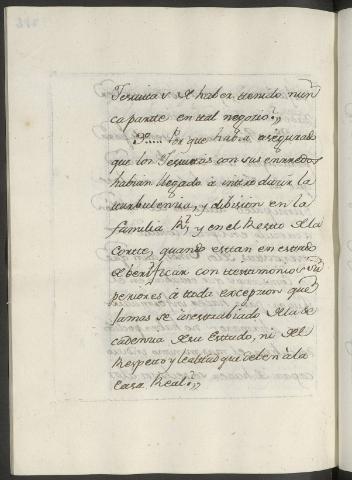 Jesuitas de haber tenido nun
ca parte en tal negocio.,,
9º.... Por que habia asegurado
que los Jesuitas con sus enredos
habian llegado a introducir la
turbulencia, y division en la
familia Rl, y en el Resto de la
Corte, quando estan en estado
de berificar con testimonios su
periores á toda excepcion que
jamas se a estrabiado de la de
cadencia de su Estado, ni del
Respeto y lealtad que deben à la
Casa Real.,,